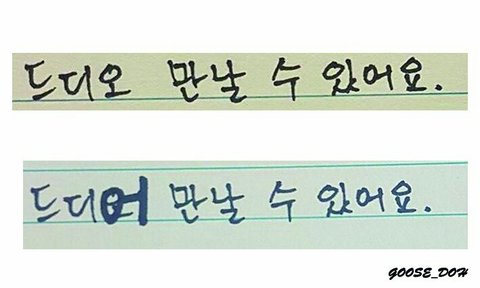 드디오 만날 수 있어요.
드디어 만날 수 있어요.
GOOSE_DOH